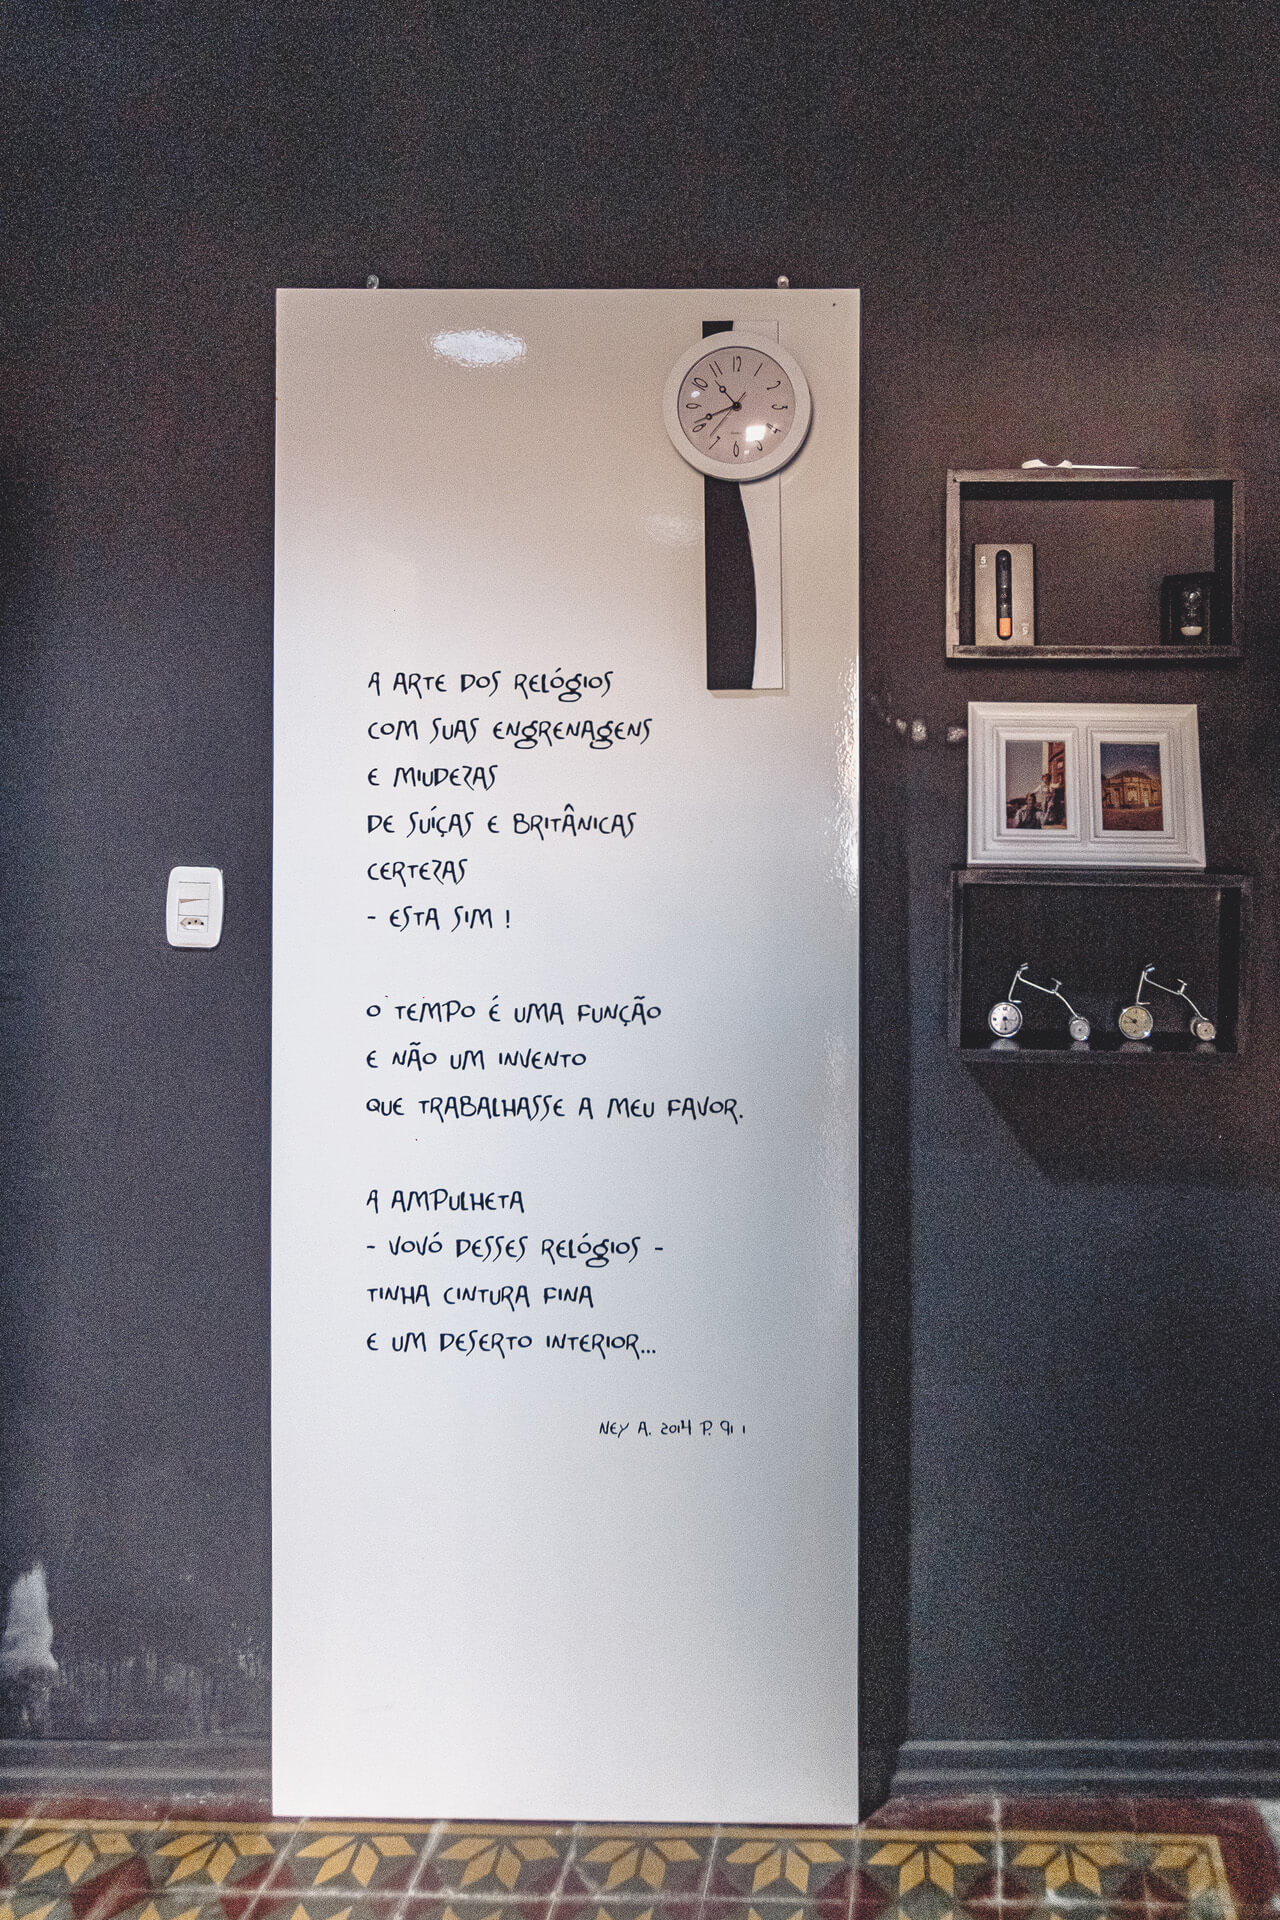 A ARTE DOS RELÓGIOS
COM SUAS ENGRENAGENS
E MIUDEZAS
DE SUÍÇAS E BRITÂNICAS
CERTEZAS
- ESTA SIM !
O TEMPO É UMA FUNÇÃO
E NÃO UM INVENTO
QUE TRABALHASSE A MEU FAVOR.
A AMPULHETA
- VOVÓ DESSES RELÓGIOS -
TINHA CINTURA FINA
E UM DESERTO INTERIOR...
NEY A. 2014 P.
12
1
2
3
4
5
6
7
8
9
10
11
5
5